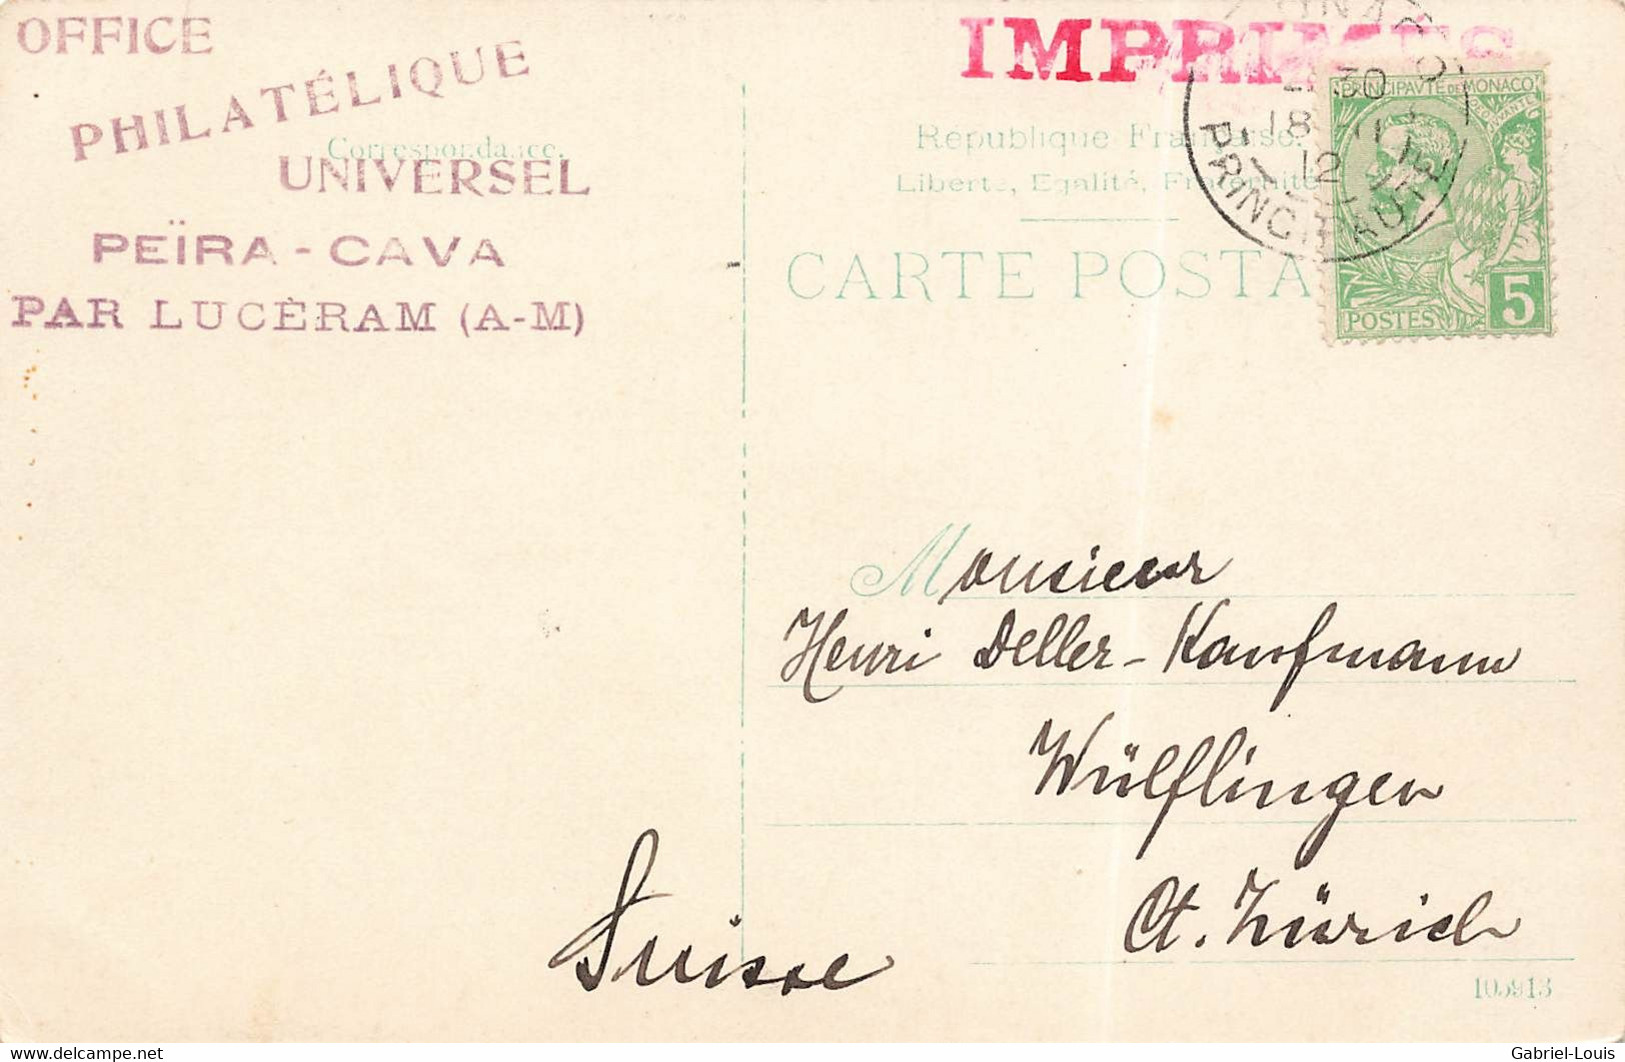 OFFICE
PHILATÉLIQUE
UNIVERSEL
PEÏRA - CAVA
PAR LUCÈRAM (A-M)
Correspondance.
IMPRIMÉS
République Française.
Liberté, Egalité, Fraternité
CARTE POSTA
PRINCIPAUTÉ DE MONACO
18
12
PRINCIPAUTÉ
POSTES
5
Monsieur
Henri Deller-Kaufmann
Wülflingen
Ct. Zürich
Suisse
105913
delcampe.net
Gabriel-Louis